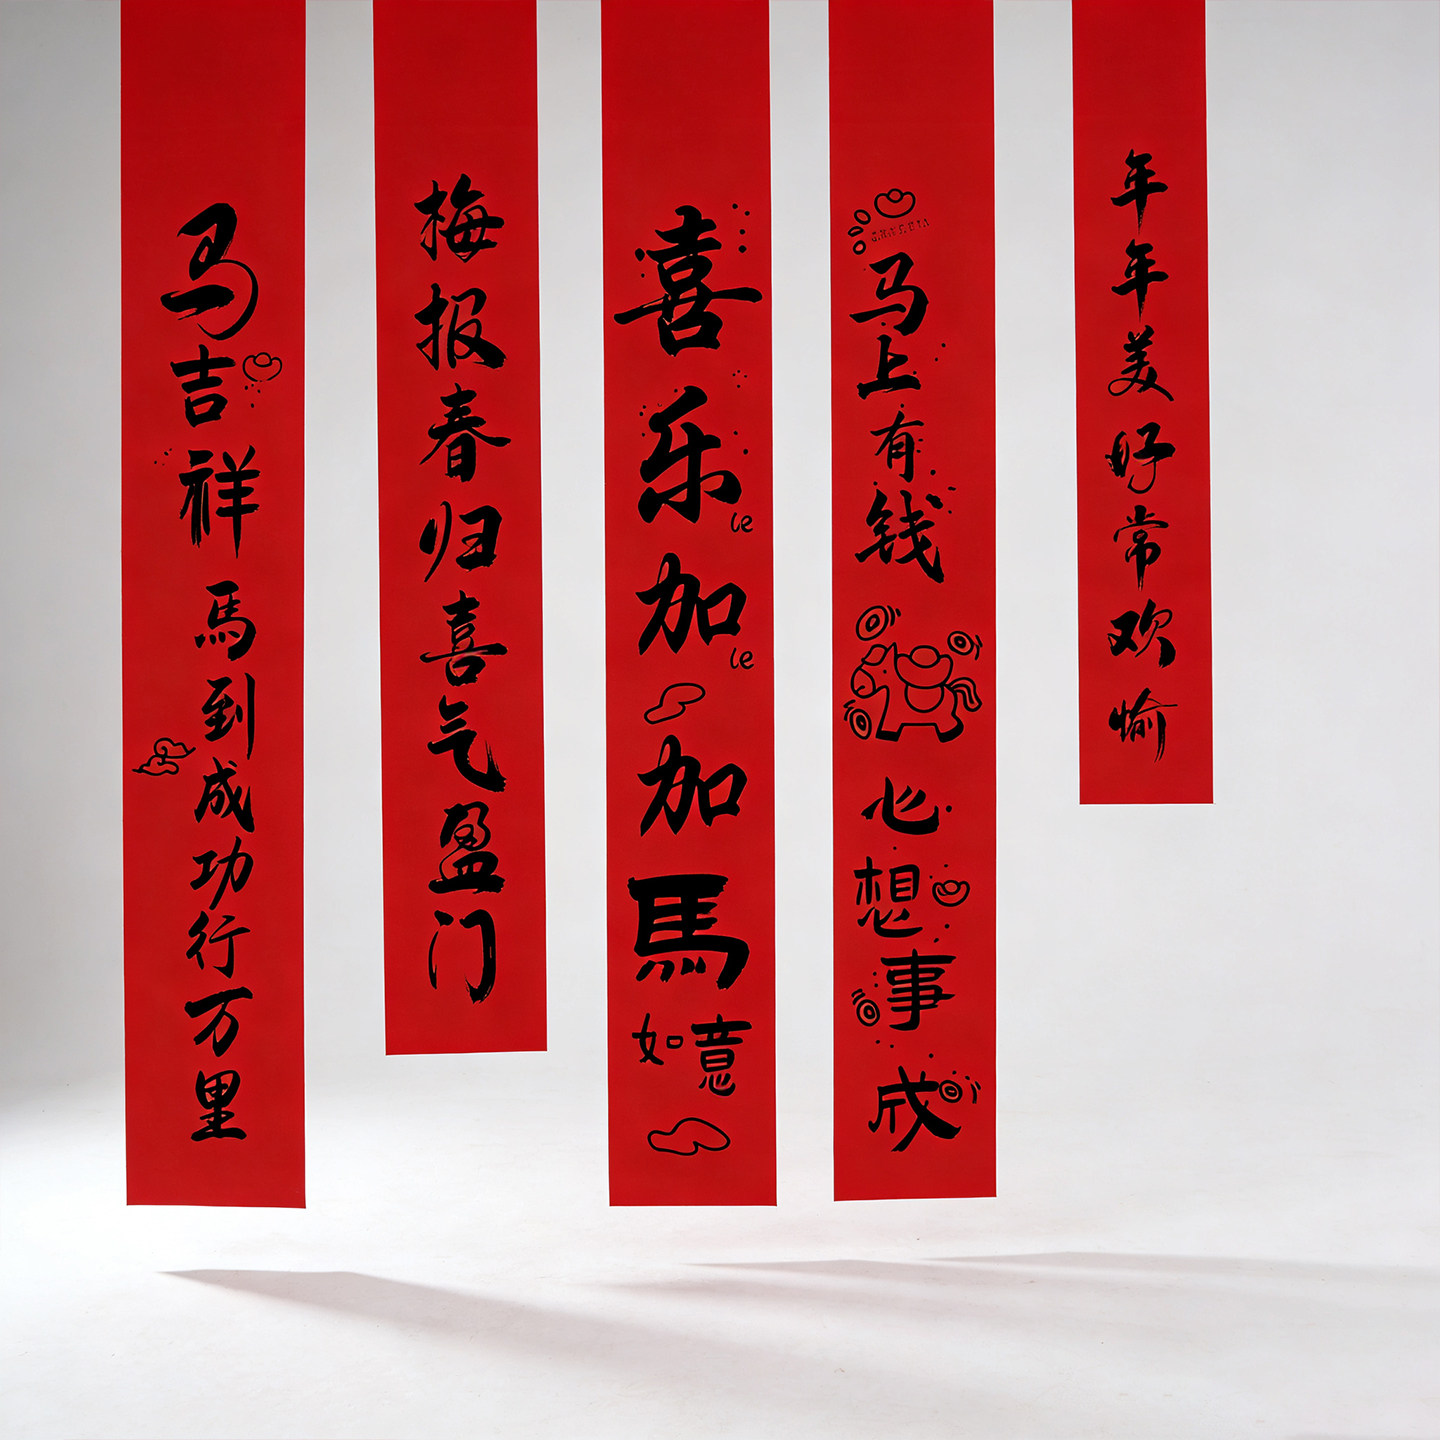 马吉祥馬到成功行万里
梅报春归喜气盈门
喜乐加加馬如意
le
le
马上有钱心想事成
年年美好常欢愉